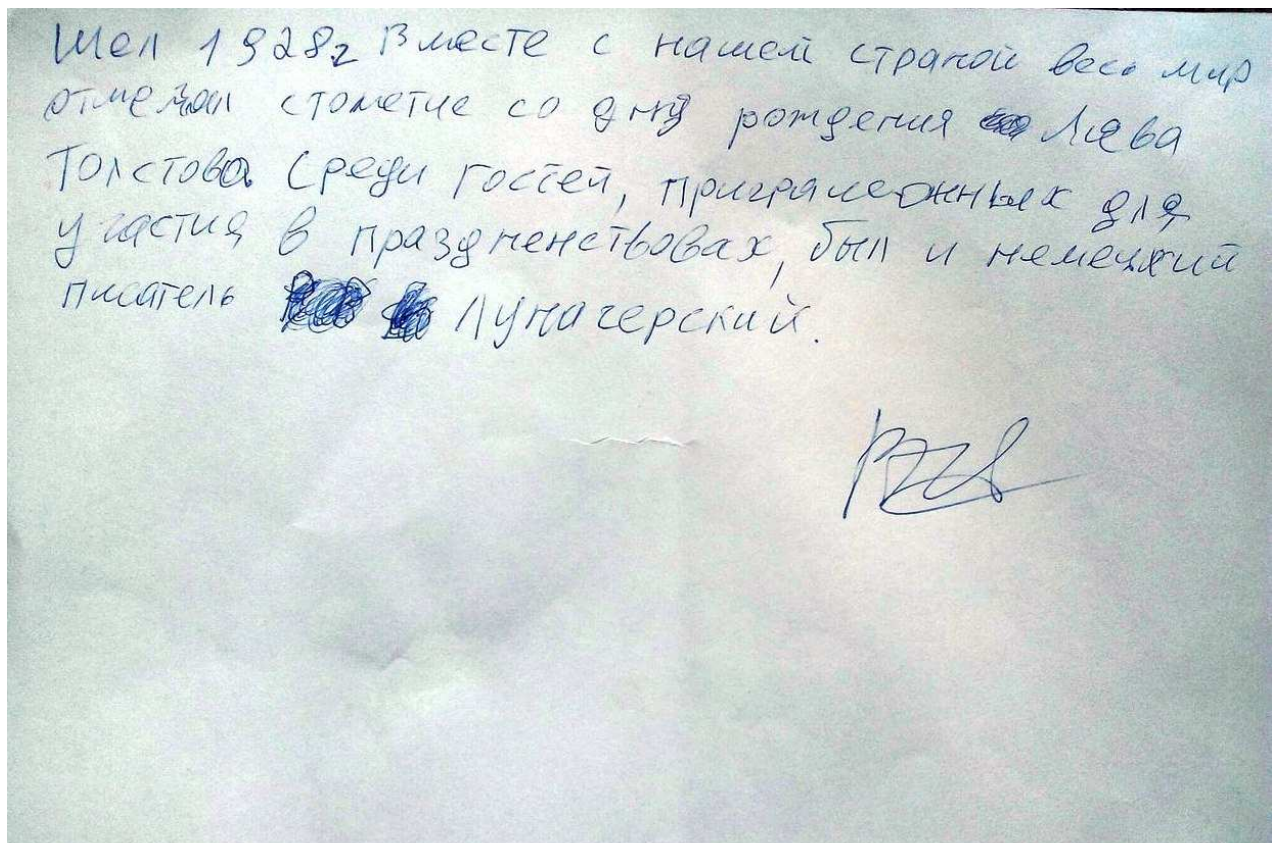 Шел 1928г Вместе с нашей страной весь мир
отмечал столетие со дня рождения Льва
Толстова Среди гостей, приграмсонных для
участия в праздненствовах, был и немецкий
писатель Луначерский.